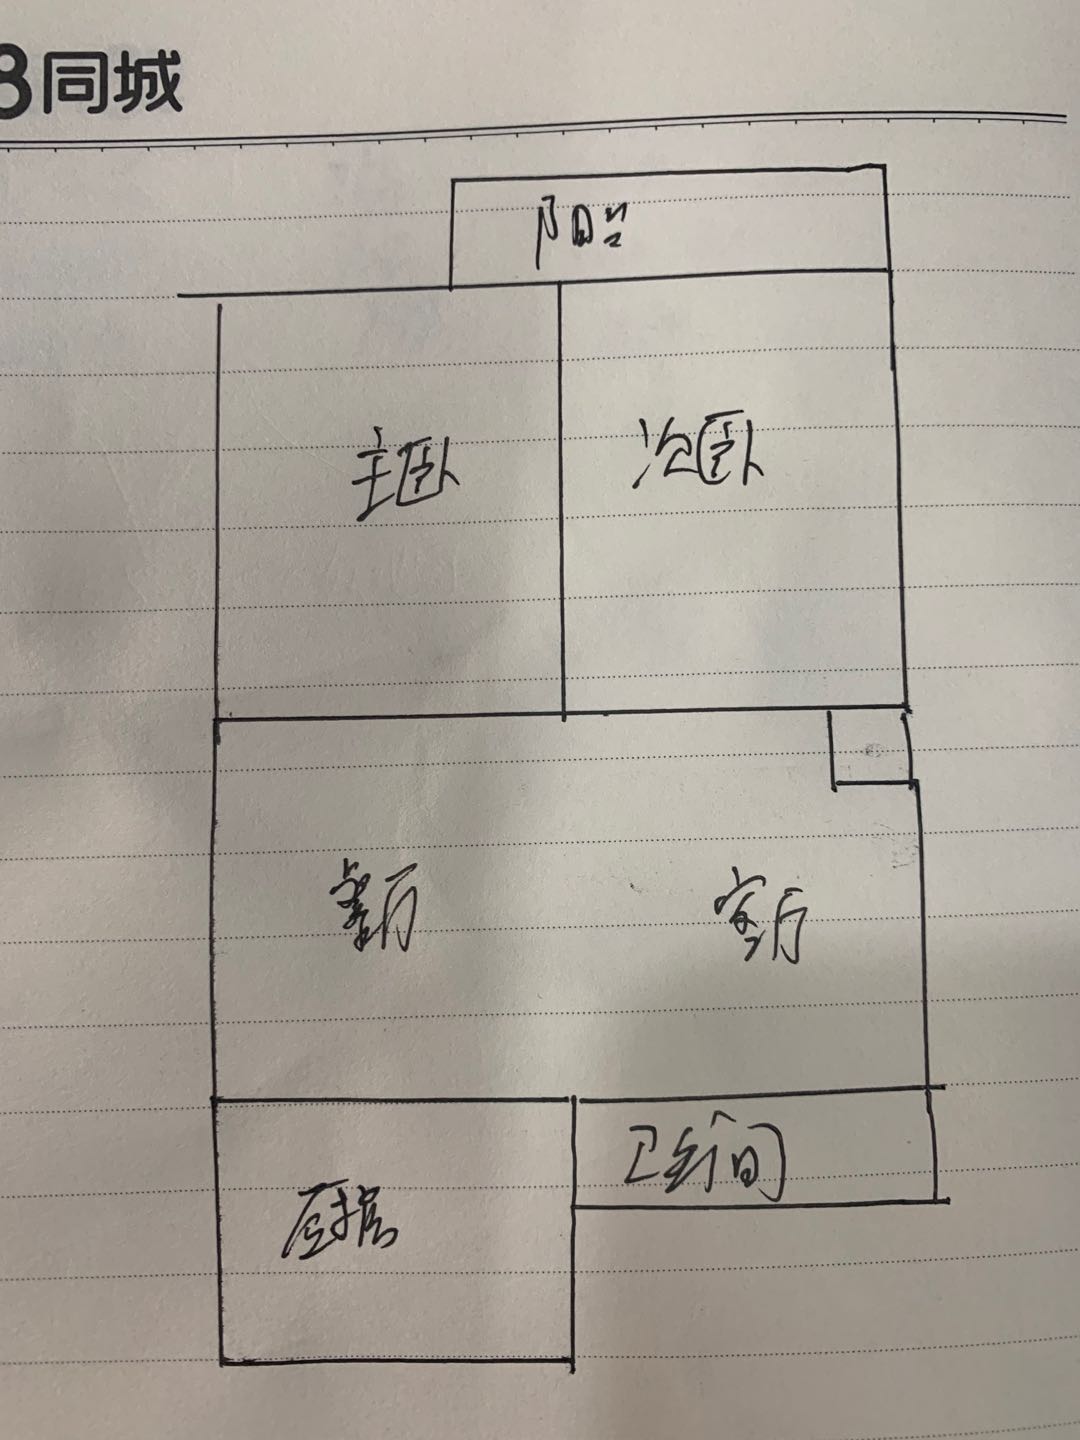 8同城
阳台
主卧
次卧
餐厅
客厅
卫生间
厨房